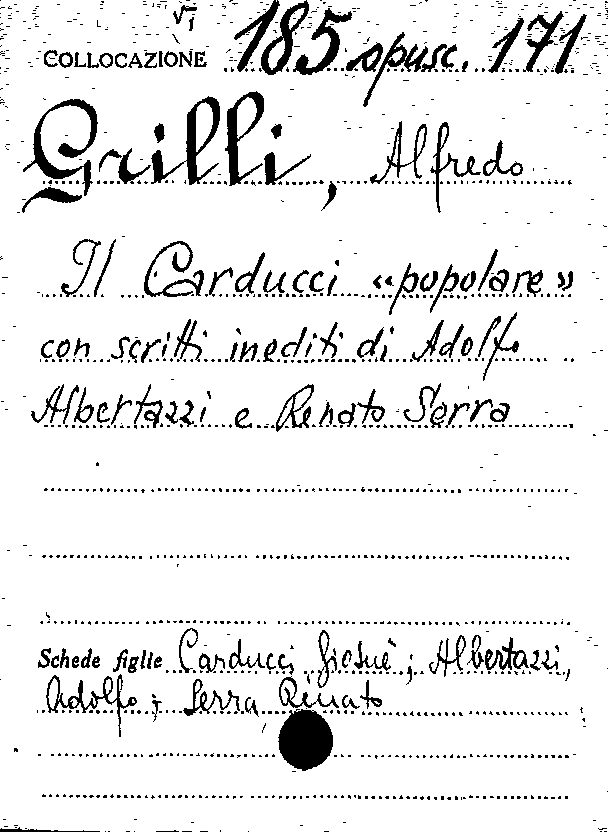 COLLOCAZIONE 185 opusc. 171
Grilli, Alfredo
Il Carducci «popolare»
con scritti inediti di Adolfo
Albertazzi e Renato Serra
Schede figlie Carducci Giosuè; Albertazzi,
Adolfo; Serra, Renato